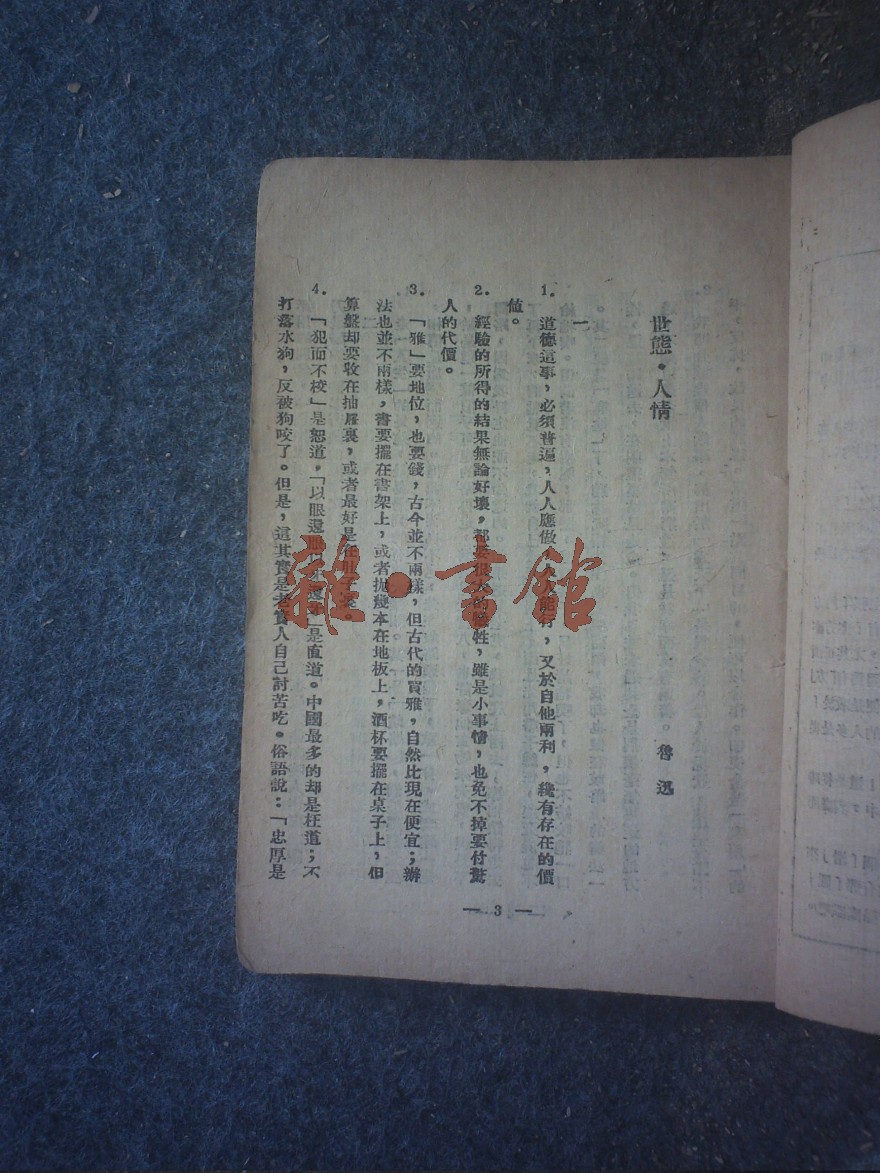 世態·人情
魯迅
一
1. 道德這事，必須普遍，人人應做，人人能行，又於自他兩利，纔有存在的價
値。
2. 經驗的所得的結果無論好壞，都要很大的犧牲，雖是小事情，也免不掉要付驚
人的代價。
3. 「雅」要地位，也要錢，古今並不兩樣，但古代的買雅，自然比現在便宜；辦
法也並不兩樣，書要擺在書架上，或者拋幾本在地板上，酒杯要擺在桌子上，但
算盤却要收在抽屜裏，或者最好是在肚子裏。
4. 「犯而不校」是恕道，「以眼還眼以牙還牙」是直道。中國最多的却是枉道；不
打落水狗，反被狗咬了。但是，這其實是老實人自己討苦吃。俗語說：「忠厚是
— 3 —
雜·書館